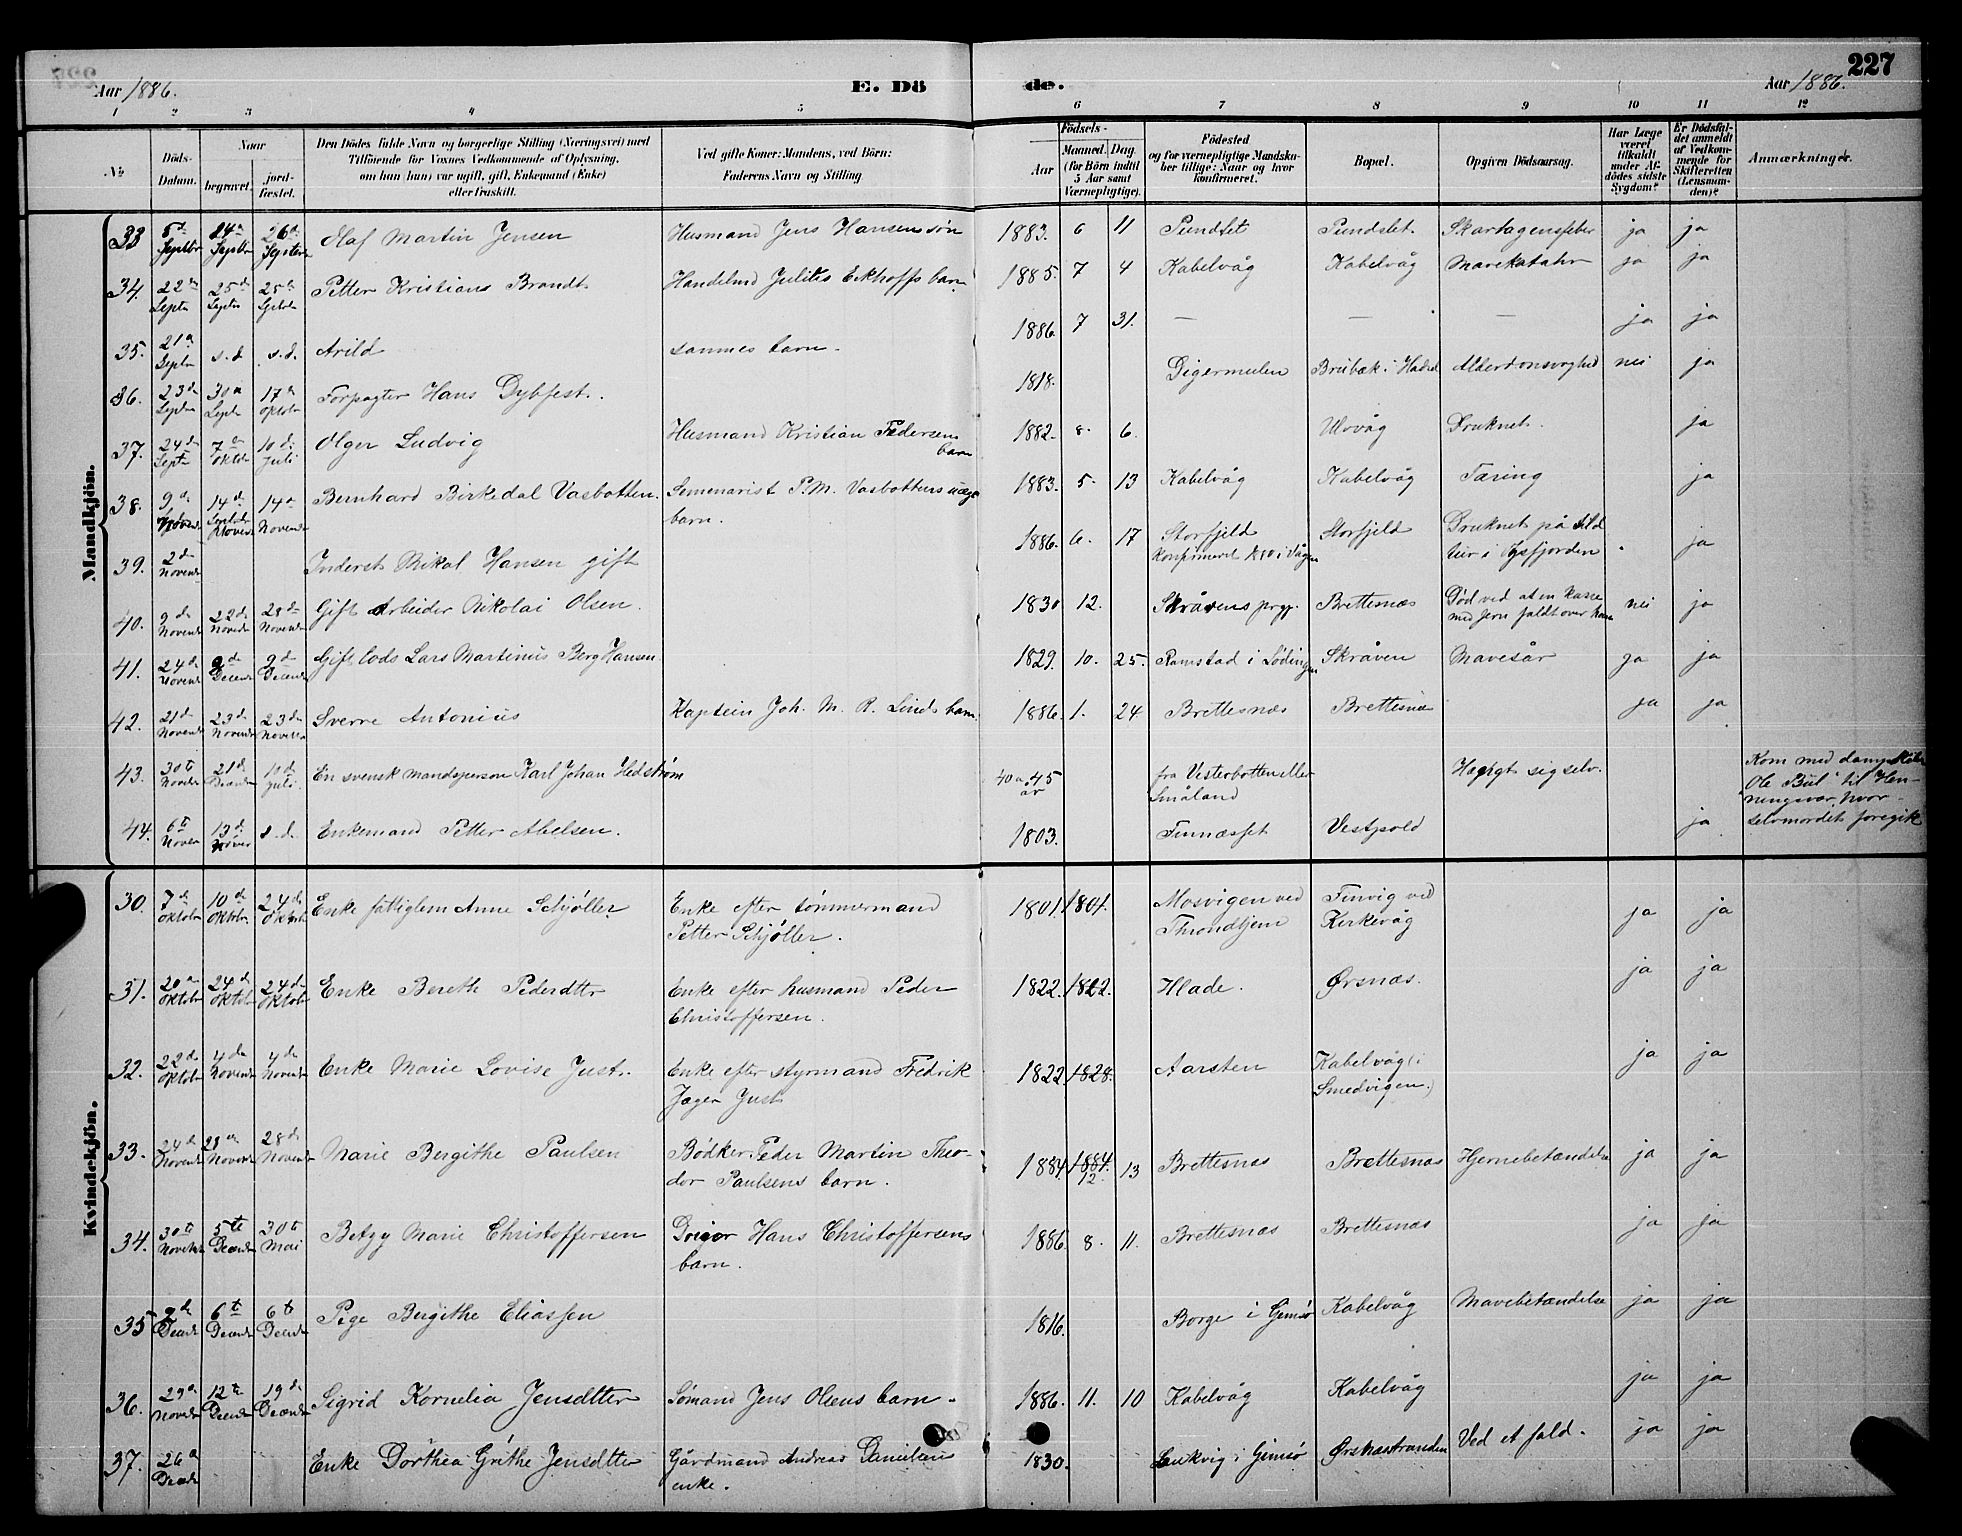 227
Aar 1886. E. Dö de. Aar 1886.
1 2 3 4 5 6 7 8 9 10 11 12
№
Döds-Datum.
Naar
begravet.
jord-fæstet.
Den Dödes fulde Navn og borgerlige Stilling (Næringsvei) med
Tilföiende for Voxnes Vedkommende af Oplysning,
om han (hun) var ugift, gift, Enkemand (Enke)
eller fraskilt.
Ved gifte Koner: Mandens, ved Börn:
Faderens Navn og Stilling.
Födsels-
Aar
Maaned. Dag.
(for Börn indtil
5 Aar samt
Værnepligtige).
Födested
og for værnepligtige Mandska-
ber tillige: Naar og hvor
konfirmeret.
Bopæl.
Opgiven Dödsaarsag.
Har Læge
været
tilkaldt
under Af-
dödes sidste
Sygdom?
Er Dödsfal-
det anmeldt
af Vedkom-
mende for
Skifteretten
(Lensman-
den)?
Anmærkninger.
Mandkjön.
33. 5d Septbr 24d Septbr 26d Septbr Olaf Martin Jensen Husmand Jens Hansens søn 1883. 6 11 Pundslet Pundslet. Skarlagensfeber ja ja
34. 22d Septr 25d Septr 25d Septbr Petter Kristians Brandt Handelsmd Julius Eckhoffs barn 1885. 7 4 Kabelvåg Kabelvåg Mavekatahr ja ja
35. 21d Septr s.d. s.d. Arild sammes barn. 1886. 7 31. — — — ja ja
36. 23d Septr 30d Septr 17d Oktobr Forpagter Hans Dybfest. 1818. Digermulen Breibæk i Hadsel Alderdomssvaghed nei ja
37. 24d Septr 7d Oktbr 10d Juli Olger Ludvig Husmand Kristian Pedersens barn 1882. 8. 6. Ulvvåg Druknet. ja
38. 9d Novembr 14d Novembr 14d Novembr Bernhard Birkedal Vasbotten. Semenarist P.M. Vasbottens uægte barn. 1883. 5. 13 Kabelvåg Kabelvåg Tæring ja
39. 2d Novembr Inderst Mikal Hansen gift 1886. 6. 17 Storfjeld Konfirmeret i Vågen Storfjeld Druknet på sild i Øxfjorden ja
40. 9d Novembr 22d Novembr 28d Novembr Gift Arbeider Nikolai Olsen. 1830 12. Skråvens prgj. Brettesnæs Død ved at en kasse med Jern faldt over ham nei ja
41. 24d Novembr 9d Decembr 9d Decembr Gift Lods Lars Martinus Berg Hansen. 1829. 10. 25. Ramstad i Lødingen Skråven Mavesår ja ja
42. 21d Novembr 23d Novembr 23d Novembr Sverre Antonius Kaptein Joh. M. R. Linds barn. 1886. 1. 24 Brettesnæs Brettesnæs ja ja
43. 30t Novbr 21d Decembr 10d Juli En svensk mandsperson Karl Johan Hedstrøm 40 a 45 år fra Vesterbotten eller Småland Hængt sig selv. Kom med dampskib
Ole Bul til Hen-
ningsvær, hvor
selvmordet foregik
44. 6t Novem 13d s.d. Enkemand Petter Abelsen. 1803. Finnæsset Vestpold ja
Kvindekjön.
30. 7d Oktobr 10d Oktobr 24d Oktobr Enke fattiglem Anne Schjøller Enke efter tømmermand
Petter Schjøller. 1801 1801. Mosvigen ved
Throndhjem Finvig ved
Kirkevåg ja ja
31. 20d Oktobr 24d Oktobr 24d Oktobr Enke Berethe Pedersdttr Enke efter husmand Peder
Christoffersen. 1822. 1822. Hlade. Ørsnæs. ja ja
32. 22d Oktobr 4d Novembr 4d Novembr Enke Marie Lovise Just. Enke efter styrmand Fredrik
Jæger Just 1822. 1828. Aarsten Kabelvåg (i
Smedvigen.) ja ja
33. 24d Novembr 28d Novembr 28d Novembr Marie Bergithe Paulsen Bødker Peder Martin Theo-
dor Paulsens barn. 1884. 1884. 12. 13 Brettesnæs Brettesnæs Hjernebetændelse ja ja
34. 30t Novembr 5te Decembr 30t Mai Betzy Marie Christoffersen Hans Christoffersens
barn. 1886. 8. 11. Brettesnæs Brettesnæs ja ja
35 2d Decembr 6t Decembr 6t Decembr Pige Bergithe Eliassen 1816. Borge i Gimsø Kabelvåg Mavebetændelse ja ja
36. 29d Novembr 12te Decembr 19d Decembr Sigrid Kornelia Jensdtter Sømand Jens Olsens barn. 1886. 11. 10 Kabelvåg Kabelvåg ja ja
37. 26d Decbr Enke Dorthea Grethe Jensdtter Gårdmand Andreas Danielsens
enke. 1830. Leukvig i Gimsø Ørsnæsstranden Ved et fald. ja ja